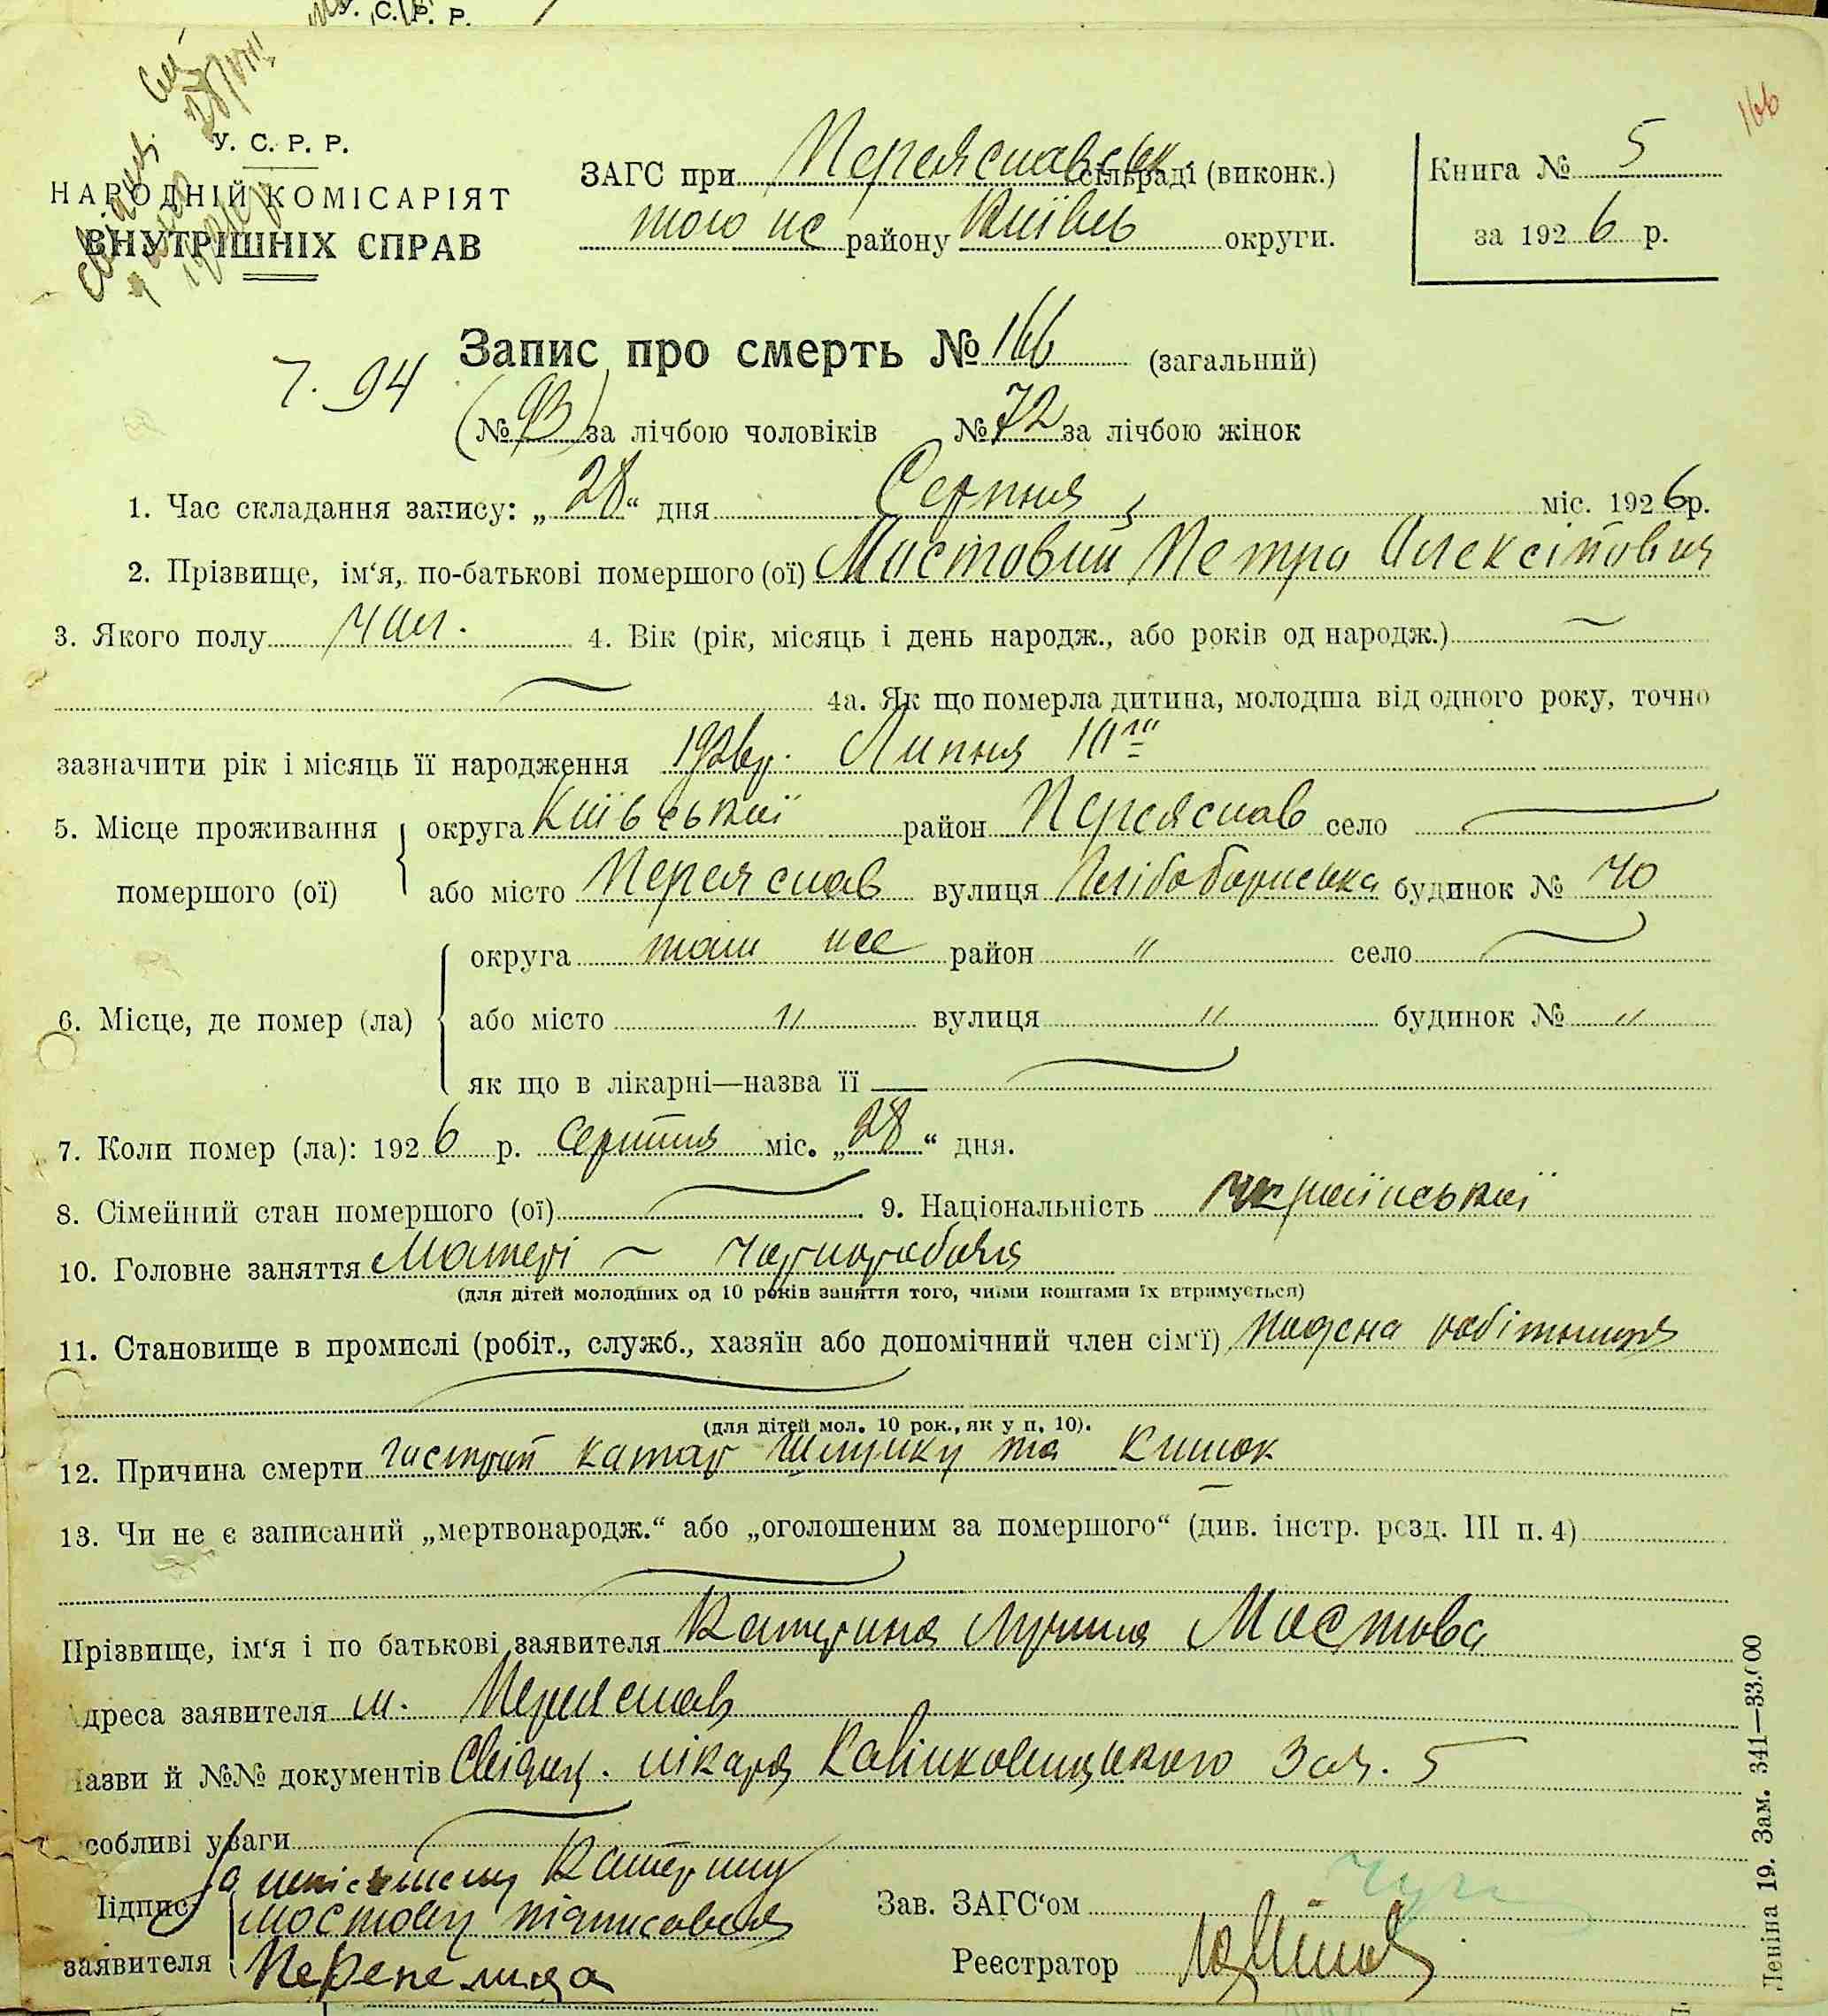 У. С. Р. Р.
НАРОДНІЙ КОМІСАРІЯТ
ВНУТРІШНІХ СПРАВ
ЗАГС при Переяславськ сільраді (виконк.)
того же району Київсь округи.
Книга № 5
за 1926 р.
166
Запис про смерть № 166 (загальний)
7. 94
(№ 93) за лічбою чоловіків № 72 за лічбою жінок
1. Час складання запису: „28“ дня Серпня міс. 1926 р.
2. Прізвище, ім'я, по-батькові помершого (ої) Мостовий Петро Олексійович
3. Якого полу чол. 4. Вік (рік, місяць і день народж., або років од народж.)
4а. Як що померла дитина, молодша від одного року, точно
зазначити рік і місяць її народження 1926 р. Липня 10го
5. Місце проживання помершого (ої) округа Київської район Переяслав село
або місто Переяслав вулиця будинок № 40
6. Місце, де помер (ла) округа там же район " село
або місто " вулиця " будинок № "
як що в лікарні—назва її
7. Коли помер (ла): 1926 р. серпня міс. „28“ дня.
8. Сімейний стан помершого (ої) 9. Національність української
10. Головне заняття Матері — чорнороб
(для дітей молодших од 10 років заняття того, чиїми коштами їх втримується)
11. Становище в промислі (робіт., служб., хазяїн або допомічний член сім'ї) робітниця
(для дітей мол. 10 рок., як у п. 10).
12. Причина смерти гострий катар шлунку та кишок
13. Чи не є записаний „мертвонародж.“ або „оголошеним за помершого“ (див. інстр. розд. III п. 4)
Прізвище, ім'я і по батькові заявителя Катерина Мостова
Адреса заявителя м. Переяслав
Назви й №№ документів Свідоц. лікаря за № 5
собливі уваги
Підпис заявителя За неписьменну Катерину
Мостову підписався
Перепелица
Зав. ЗАГС'ом
Реєстратор
Леніна 19. Зам. 341—33.000